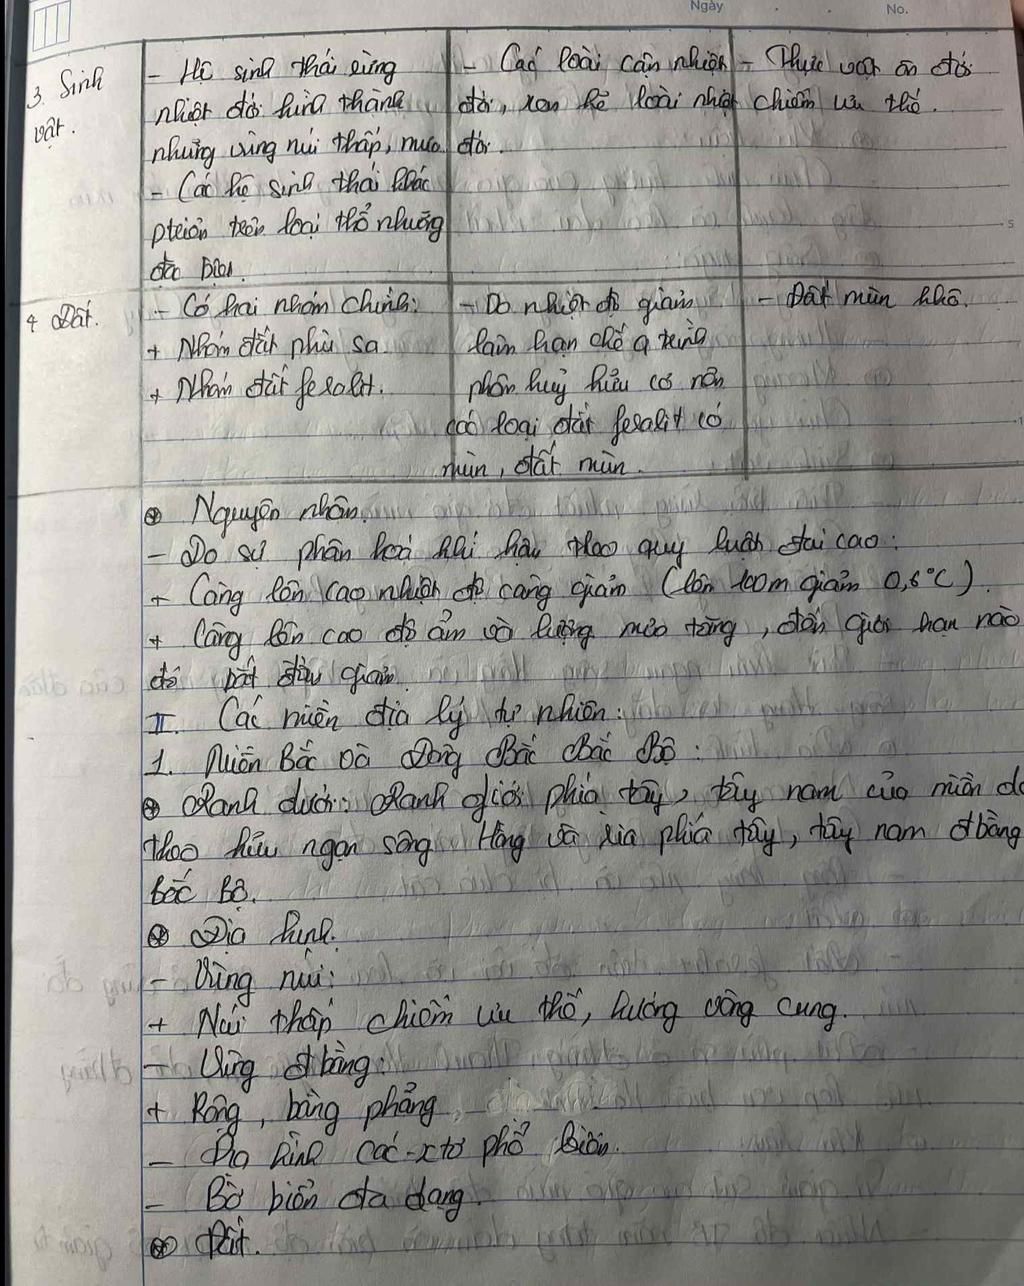 Ngày No.
3. Sinh vật.
- Hệ sinh thái rừng
nhiệt đới hình thành
những vùng núi thấp, mưa
- Các hệ sinh thái khác
ptriển trên loại thổ nhưỡng
đặc biệt.
- Các loài cận nhiệt
đới, xen kẽ loài nhiệt
đới.
- Thực vật ôn đới
chiếm ưu thế.
4 Đất.
- Có hai nhóm chính:
+ Nhóm đất phù sa.
+ Nhóm đất feralit.
- Do nhiệt độ giảm
làm hạn chế q trình
phân huỷ hữu cơ nên
các loại đất feralit có
mùn, đất mùn.
- Đất mùn khô.
⊛ Nguyên nhân.
- Do sự phân hoá khí hậu theo quy luật đai cao:
+ Càng lên cao nhiệt độ càng giảm (lên 100m giảm 0,6°C).
+ Càng lên cao độ ẩm và lượng mưa tăng, đến giới hạn nào
đó bắt đầu giảm.
II. Các miền địa lý tự nhiên:
1. Miền Bắc và Đông Bắc Bắc Bộ:
⊛ Ranh dưới: Ranh giới phía tây, tây nam của miền dọ
theo hữu ngạn sông Hồng và rìa phía tây, tây nam đbằng
bắc bộ.
⊛ Địa hình.
- Vùng núi:
+ Núi thấp chiếm ưu thế, hướng vòng cung.
- Vùng đbằng:
+ Rộng, bằng phẳng
- Địa hình các-xtơ phổ biến.
- Bờ biển đa dạng.
⊛ Đất.